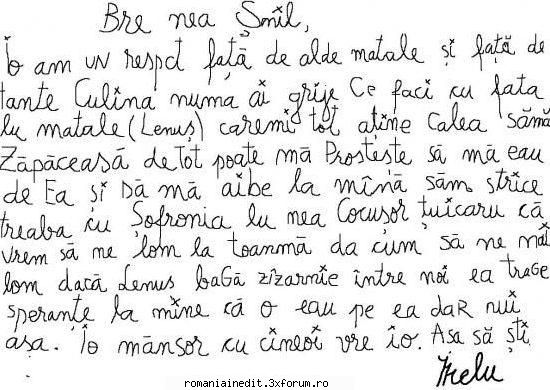 Bre nea Smil,
Io am un respct față de alde matale și față de
tante Culina numa ai grije Ce faci cu fata
lu matale (Lenuș) caremi tot atine Calea sămă
Zăpăcească deTot poate mă Prostește să mă eau
de Ea și Dă mă aibe la mînă săm strice
treaba cu Șofronia lu nea Cocușor țuicaru că
vrem să ne lom la toamnă da cum să ne mai
lom dacă Lenus bagă zîzarnie între noi ea trage
sperante la mine că o eau pe ea daR nui
așa. Io mânsor cu cineoi vre io. Asa să ști
Jnelu
romaniainedit.3xforum.ro